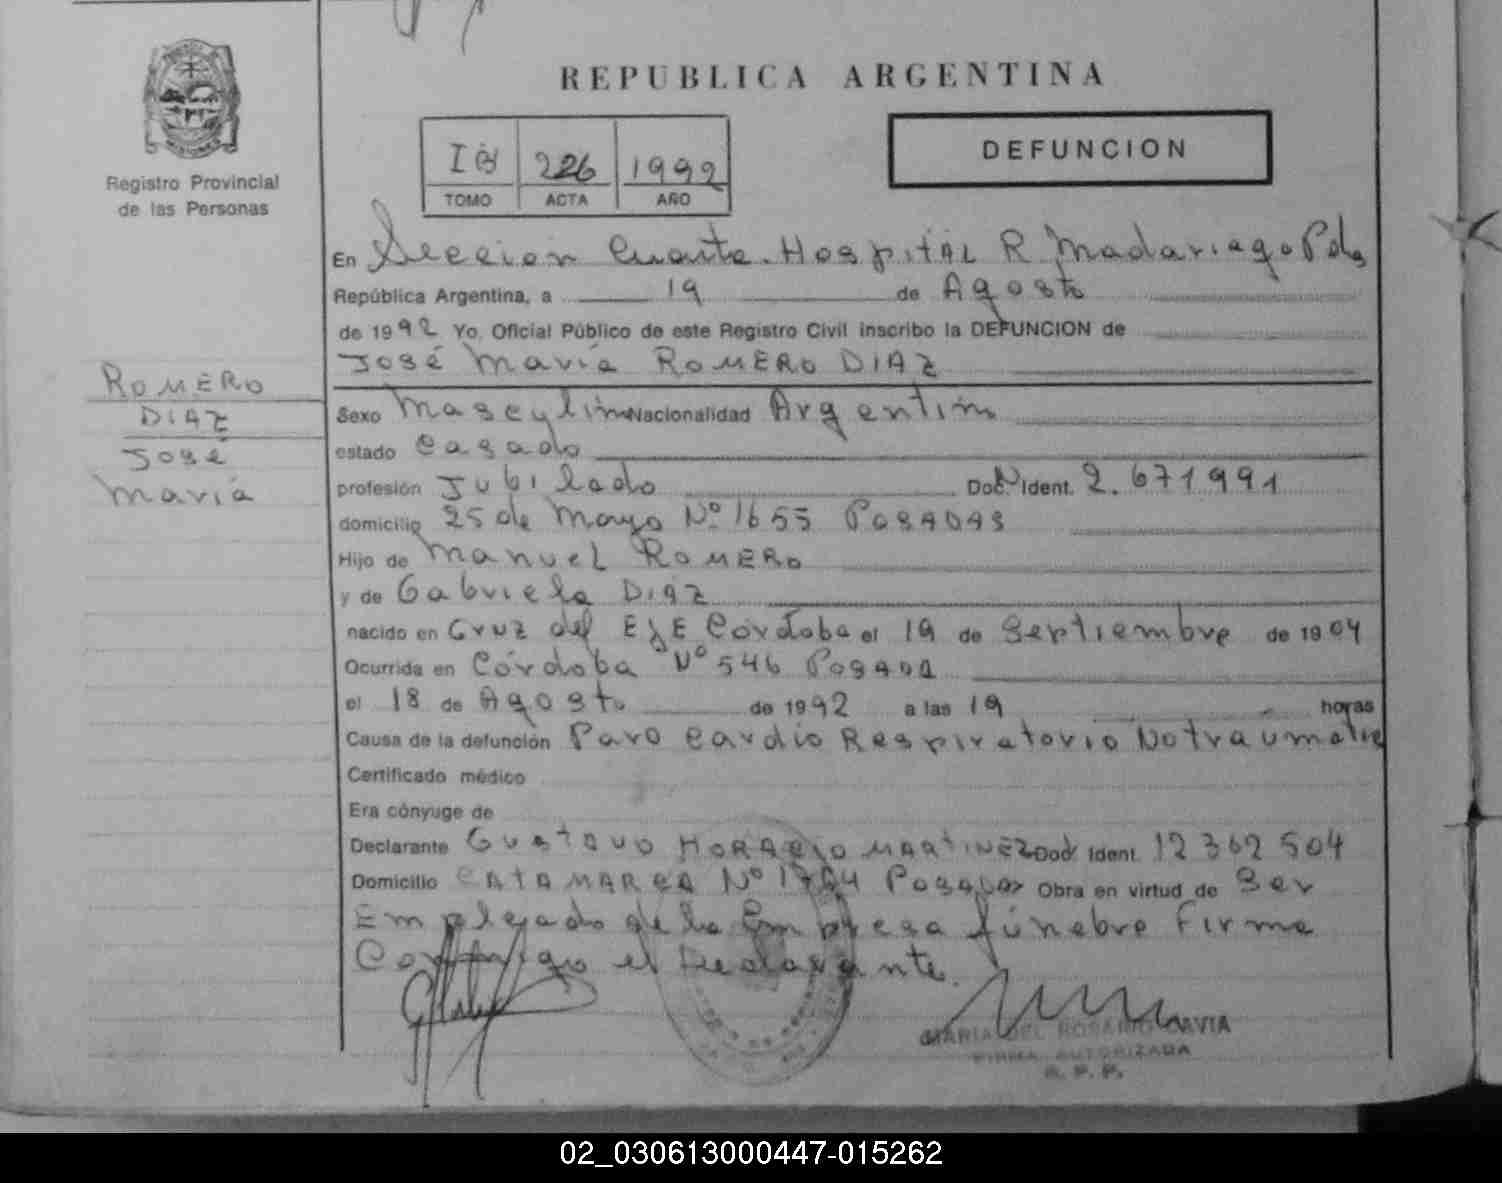 REPUBLICA ARGENTINA
MISIONES
Registro Provincial
de las Personas
226 1992
TOMO ACTA AÑO
DEFUNCION
En Seccion Cuarta Hospital R Madariaga Pdas
República Argentina, a 19 de Agosto
de 1992 Yo, Oficial Público de este Registro Civil inscribo la DEFUNCION de
José María ROMERO DIAZ
ROMERO
DIAZ
José
María
Sexo Masculino Nacionalidad Argentino
estado Casado
profesión Jubilado Doc. Ident. 2.671991
domicilio 25 de Mayo Nº 1655 POSADAS
Hijo de Manuel ROMERO
y de Gabriela DIAZ
nacido en Cruz del EJE Córdoba el 19 de Septiembre de 1904
Ocurrida en Córdoba Nº 546 Posada
el 18 de Agosto de 1992 a las 19 horas
Causa de la defunción Paro Cardio Respiratorio No traumatic
Certificado médico
Era cónyuge de
Declarante Gustavo HORACIO MARTINEZ Doc. Ident. 12 362 504
Domicilio CATAMARCA Nº Posadas Obra en virtud de Ser
Empleado de la Empresa fúnebre Firma
Conmigo el Declarante.
MARIA DEL ROSARIO
FIRMA AUTORIZADA
R. P. P.
02_030613000447-015262